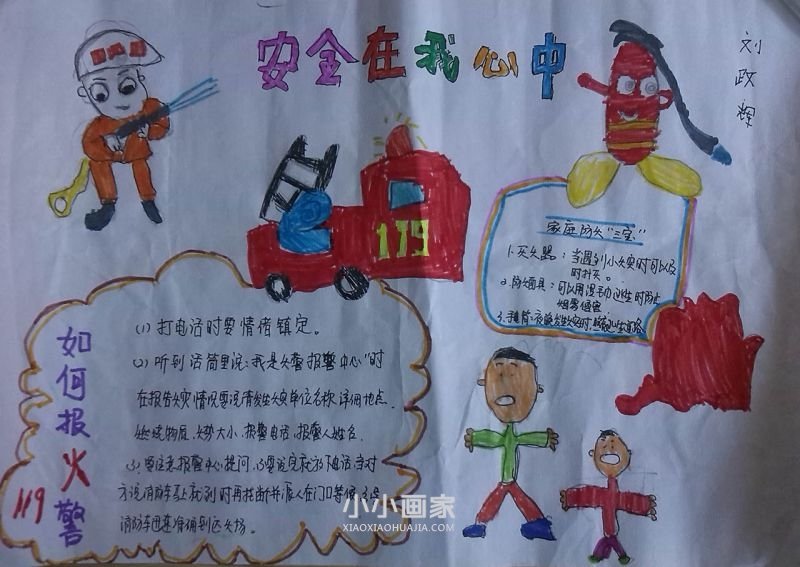 安全在我心中
刘政辉
119
家庭防火"三宝"
1.灭火器：当遇到小火灾时可以及
时扑灭。
2.防烟面具：可以用湿毛巾逃生时防止
烟雾侵害
3.手电筒：夜晚发生火灾时,照亮逃生道路
如何报火警
119
(1) 打电话时要情绪镇定。
(2) 听到话筒里说:"我是火警报警中心"时
在报告火灾情况要说清发生火灾单位名称.详细地点.
燃烧物质.火势大小.报警电话.报警人姓名.
(3) 要注意报警中心提问,
方说消防车马上就到时再挂断并派人在门口等候
消防车迅速准确到达火场。
小小画家
XIAOXIAOHUAJIA.COM